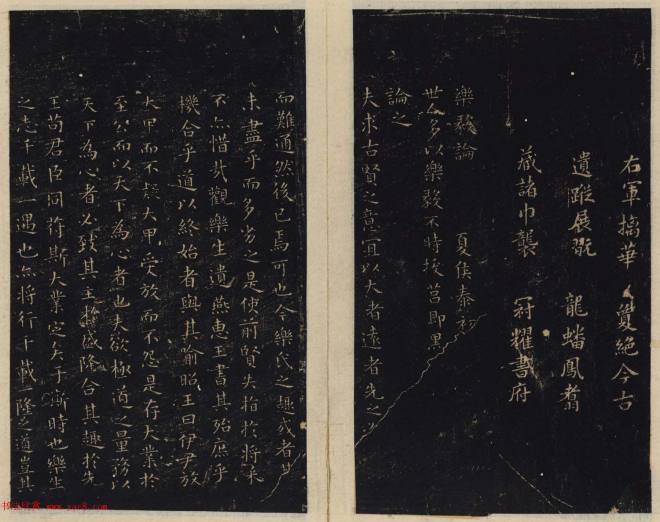 右軍摛華 夐絕今古
遺蹤展翫 龍蟠鳳翥
藏諸巾襲 冠耀書府
樂毅論 夏侯泰初
世人多以樂毅不時拔莒即墨
論之
夫求古賢之意宜以大者遠者先之必
而難通然後已焉可也今樂氏之趣或者其
未盡乎而多劣之是使前賢失指於將來
不亦惜哉觀樂生遺燕惠王書其殆庶乎
機合乎道以終始者與其喻昭王曰伊尹放
大甲而不疑大甲受放而不怨是存大業於
至公而以天下為心者也夫欲極道之量務以
天下為心者必致其主於盛隆合其趣於先
王苟君臣同符斯大業定矣于斯時也樂生
之志千載一遇也亦將行千載隆之道豈其